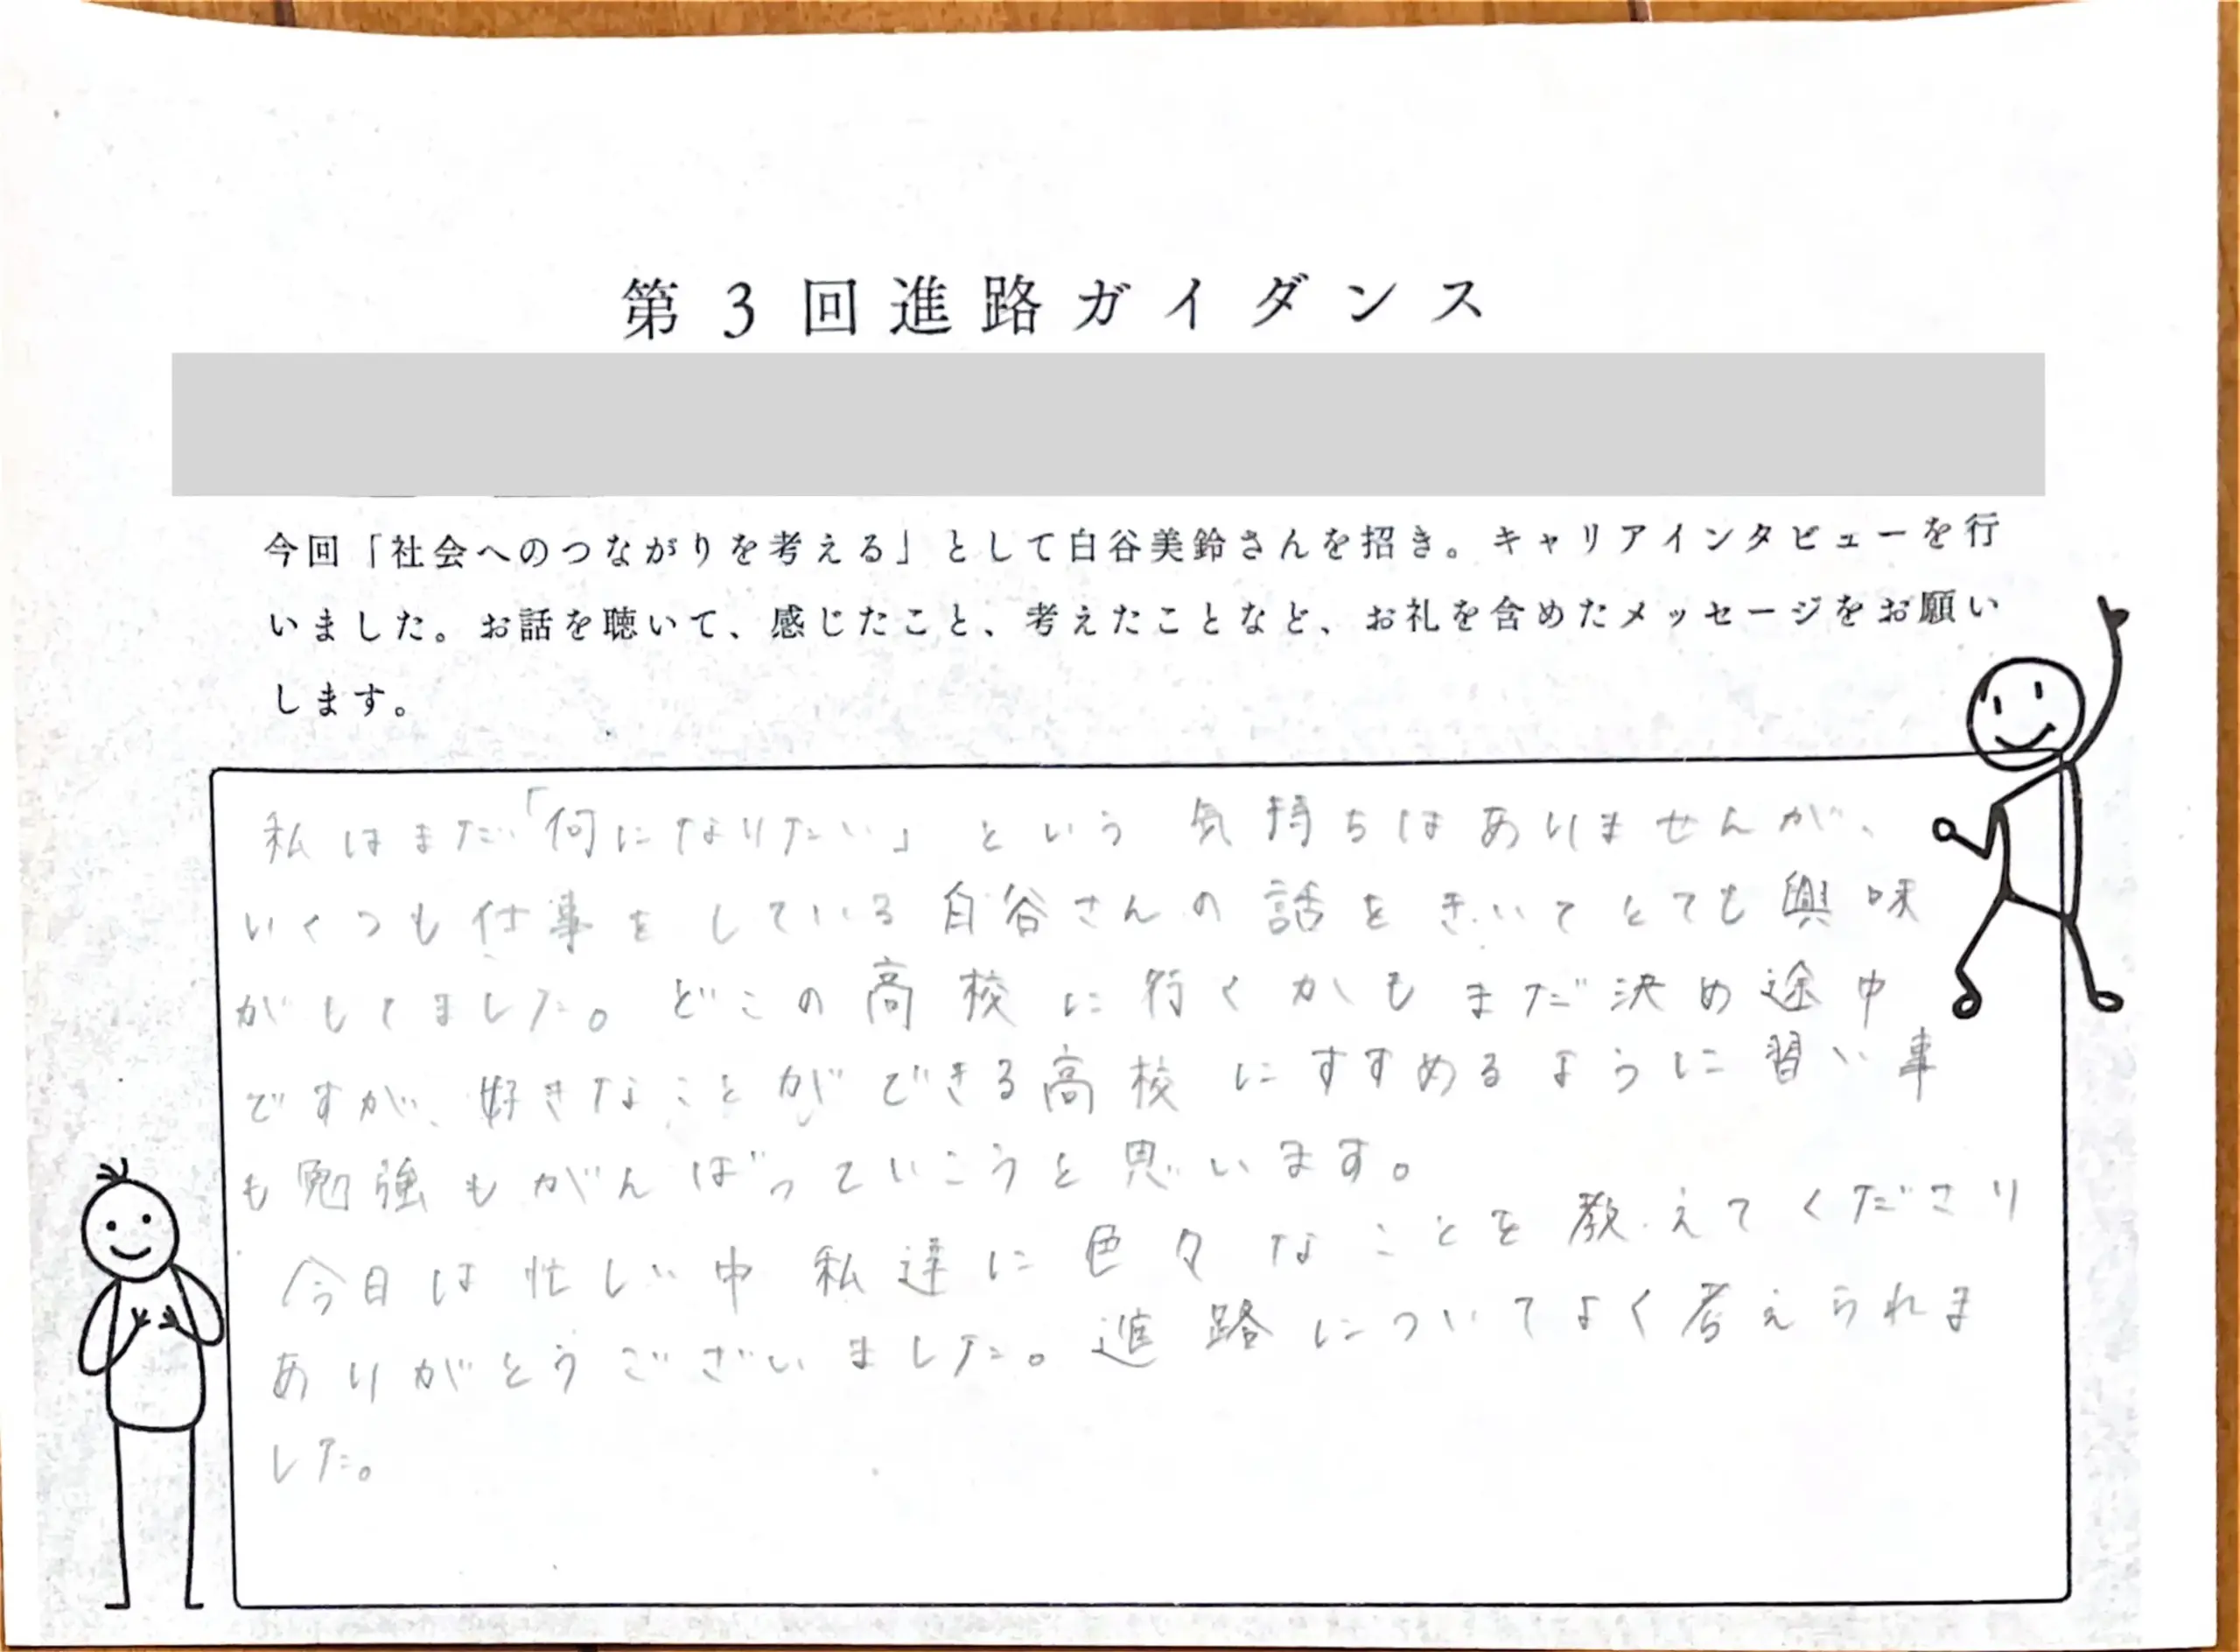 第3回進路ガイダンス
今回「社会へのつながりを考える」として白谷美鈴さんを招き。キャリアインタビューを行
いました。お話を聴いて、感じたこと、考えたことなど、お礼を含めたメッセージをお願い
します。
私はまだ「何になりたい」という気持ちはありませんが、
いくつも仕事をしている白谷さんの話をきいてとても興味
がしてました。どこの高校に行くかもまだ決め途中
ですが、好きなことができる高校にすすめるように習い事
も勉強もがんばっていこうと思います。
今日は忙しい中私達に色々なことを教えてくださり
ありがとうございました。進路についてよく考えられま
した。